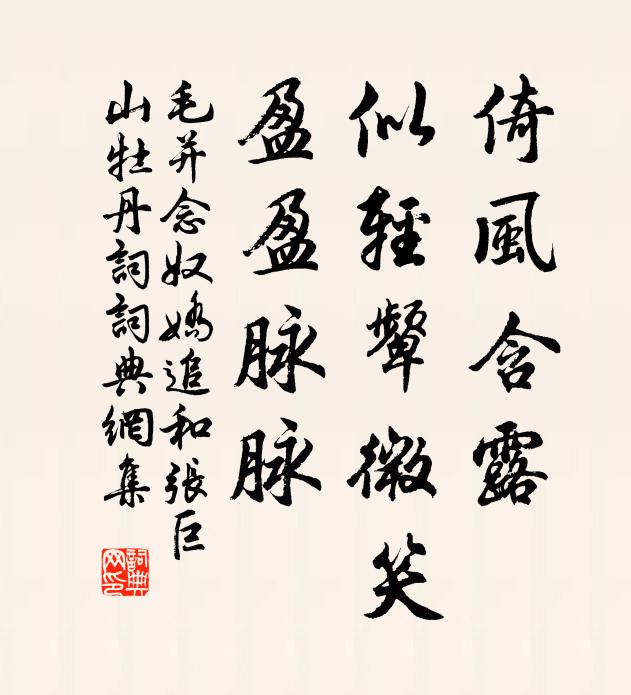 倚風含露
似輕顰微笑
盈盈脉脉
毛并念奴嬌追和張巨
山牡丹詞詞典網集
詞典网印